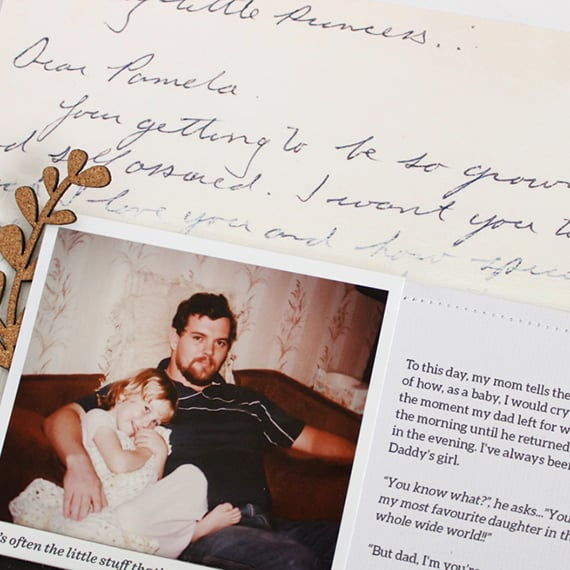 little Princess..
Dear Pamela.
Your getting to be so grown
self assured. I want you to
I love you and how
To this day, my mom tells the
of how, as a baby, I would cry
the moment my dad left for w
the morning until he returned
in the evening. I've always been
Daddy's girl.
"You know what?", he asks..."You
my most favourite daughter in th
whole wide world!!"
"But dad, I'm you're
's often the little stuff that